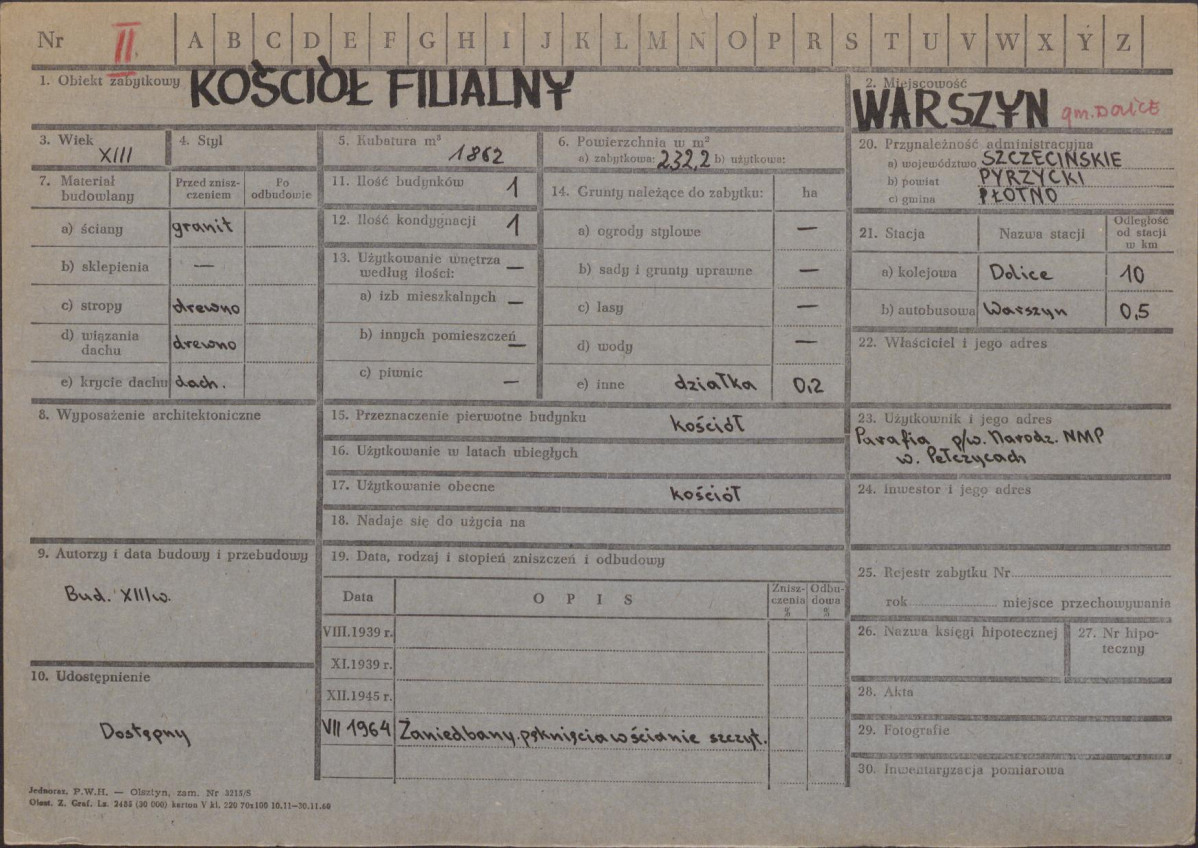 Nr II. A B C D E F G H I J K L M N O P R S T U V W X Y Z
1. Obiekt zabytkowy KOŚCIÓŁ FILIALNY
2. Miejscowość
WARSZYN gm. DOLICE
3. Wiek
XIII
4. Styl
5. Kubatura m³
1862
6. Powierzchnia w m²
a) zabytkowa: 232,2 b) użytkowa:
7. Materiał budowlany
Przed znisz-
czeniem
Po
odbudowie
a) ściany granit
b) sklepienia —
c) stropy drewno
d) wiązania
dachu drewno
e) krycie dachu dach.
8. Wyposażenie architektoniczne
9. Autorzy i data budowy i przebudowy
Bud. XIII w.
10. Udostępnienie
Dostępny
11. Ilość budynków 1
12. Ilość kondygnacji 1
13. Użytkowanie wnętrza
według ilości: —
a) izb mieszkalnych —
b) innych pomieszczeń —
c) piwnic —
14. Grunty należące do zabytku: ha
a) ogrody stylowe —
b) sady i grunty uprawne —
c) lasy —
d) wody —
e) inne działka 0,2
15. Przeznaczenie pierwotne budynku kościół
16. Użytkowanie w latach ubiegłych
17. Użytkowanie obecne kościół
18. Nadaje się do użycia na
19. Data, rodzaj i stopień zniszczeń i odbudowy
Data
O P I S
Znisz-
czenia
%
Odbu-
dowa
%
VIII.1939 r.
XI.1939 r.
XII.1945 r.
VII 1964 Zaniedbany. pęknięcia w ścianie szczyt.
20. Przynależność administracyjna
a) województwo SZCZECIŃSKIE
b) powiat PYRZYCKI
c) gmina PŁOTNO
21. Stacja
Nazwa stacji
Odległość
od stacji
w km
a) kolejowa Dolice 10
b) autobusowa Warszyn 0,5
22. Właściciel i jego adres
23. Użytkownik i jego adres
Parafia p/w. Narodz. NMP
w. Pełczycach
24. Inwestor i jego adres
25. Rejestr zabytku Nr
rok miejsce przechowywania
26. Nazwa księgi hipotecznej
27. Nr hipo-
teczny
28. Akta
29. Fotografie
30. Inwentaryzacja pomiarowa
Jednoraz. P.W.H. — Olsztyn, zam. Nr 3215/S
Olszt. Z. Graf. Lz. 2485 (30 000) karton V kl. 220 70x100 10.11—30.11.60